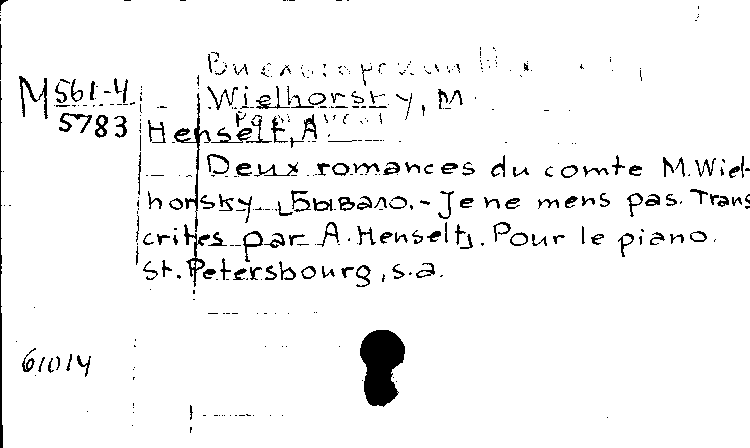 Виельгорский М.
M 561-4
5783
Wielhorsky, M.
Henselt, A.
Deux romances du comte M. Wiel-
horsky [Бывало. - Je ne mens pas. Trans
crites par A. Henselt]. Pour le piano.
St. Petersbourg, s.a.
61014